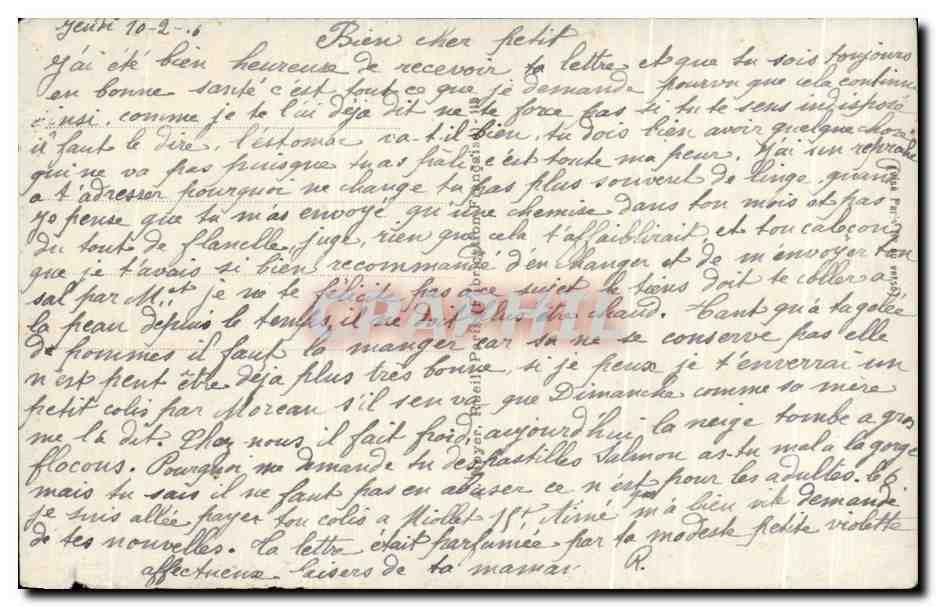 Jeudi 10-2-
Bien cher petit
J'ai été bien heureuse de recevoir ta lettre et que tu sois toujours
en bonne santé c'est tout ce que je demande pourvu que cela continue
ainsi, comme je te l'ai déjà dit ne te force pas si tu te sens indisposé
il faut le dire, l'estomac va-t-il bien, tu dois bien avoir quelque chose
qui ne va pas puisque tu as pâli c'est toute ma peur. J'ai un reproche
a t'adresser pourquoi ne change tu pas plus souvent de linge, quand
je pense que tu m'as envoyé qu'une chemise dans ton mois et pas
du tout de flanelle, juge, rien que cela t'affaiblirait et ton caleçon
que je t'avais si bien recommandé d'en changer et de m'envoyer ton
sal par M. et je ne te félicite pas a ce sujet le tiens doit te coller a
la peau depuis le temps, il ne doit plus être chaud. Tant qu'a ta gelée
de pommes il faut la manger car sa ne se conserve pas elle
n'est peut être déja plus très bonne, si je peux je t'enverrai un
petit colis par Moreau s'il s'en va que Dimanche comme sa mère
me l'a dit. Chez nous il fait froid, aujourd'hui la neige tombe a gros
flocons. Pourquoi me demande tu des pastilles Salmon as-tu mal a la gorge
mais tu sais il ne faut pas en abuser ce n'est pour les adultes.
je suis allée payer ton colis a Miollet Aimé m'a bien demandé
de tes nouvelles. Ta lettre était parfumée par ta modeste petite violette
affectueux baisers de ta maman R.
CPAPHIL